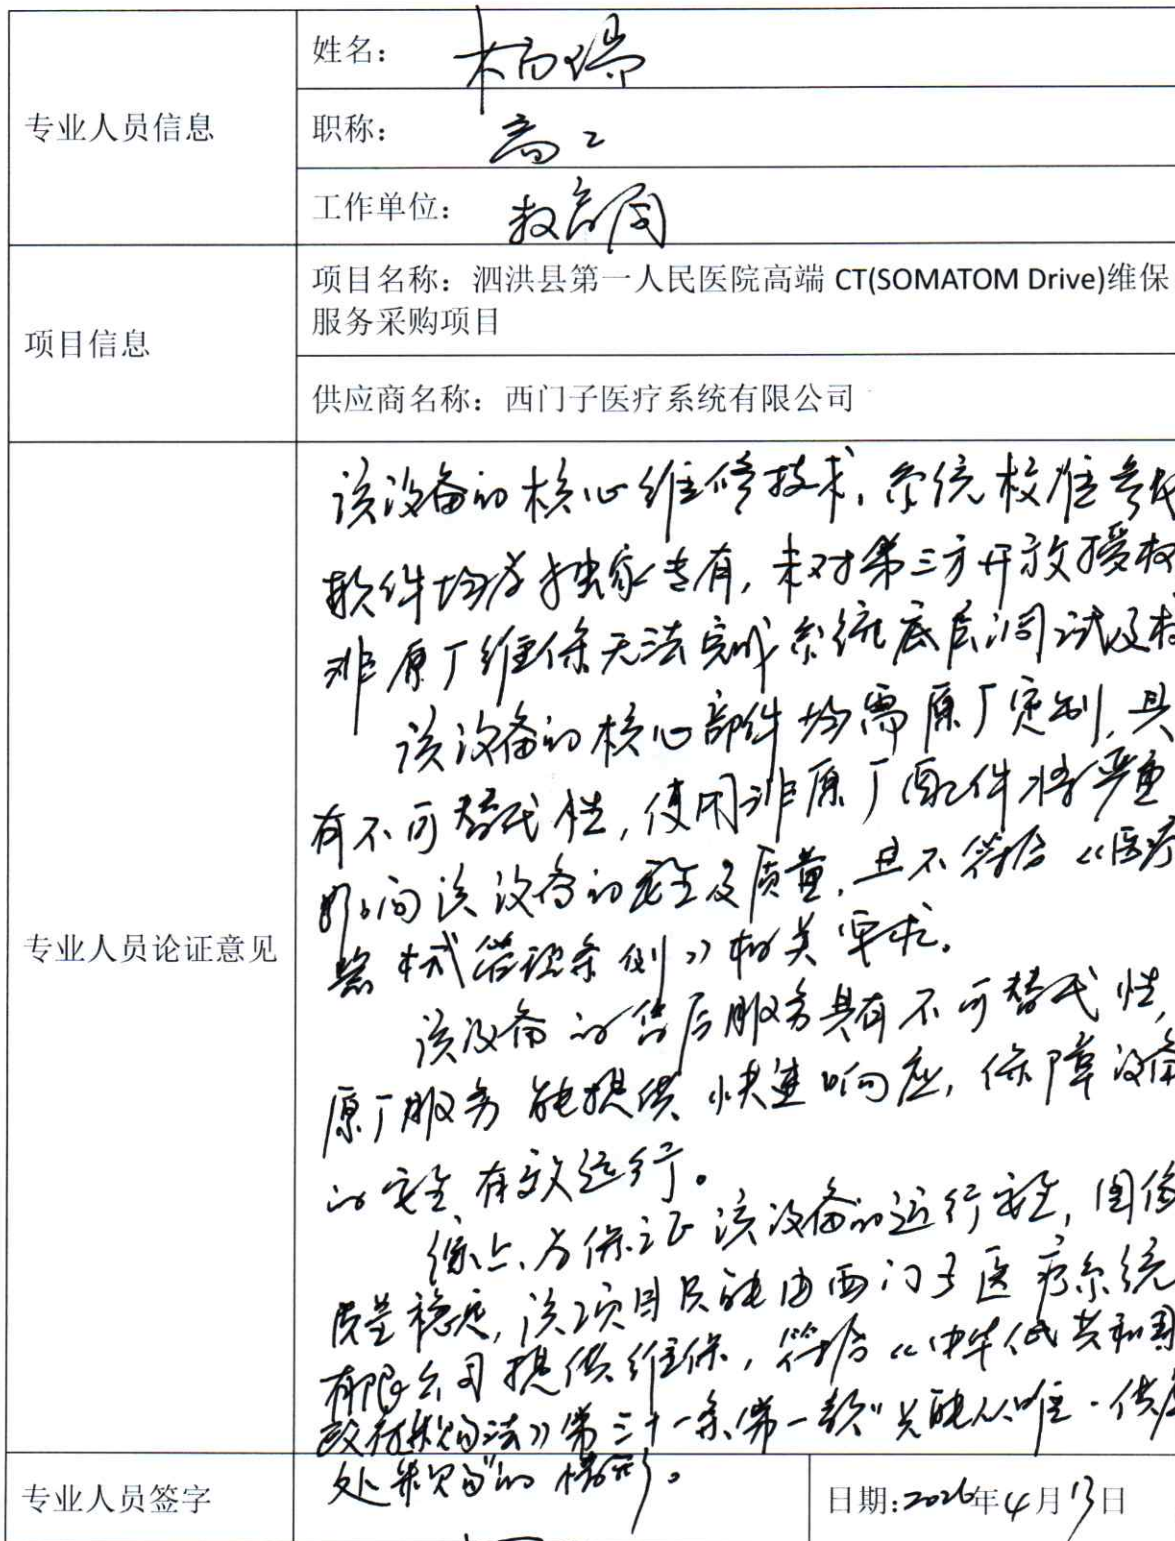 专业人员信息
姓名：杨瑞
职称：高工
工作单位：教育局
项目信息
项目名称：泗洪县第一人民医院高端 CT(SOMATOM Drive)维保
服务采购项目
供应商名称：西门子医疗系统有限公司
专业人员论证意见
该设备的核心维修技术，系统校准参
软件均为独家专有，未对第三方开放授权
非原厂维保无法完成系统底层调试及校
该设备的核心部件均需原厂定制，具
有不可替代性，使用非原厂配件将严重
影响该设备的安全及质量，且不符合《医疗
器械管理条例》相关要求。
该设备的售后服务具有不可替代性，
原厂服务能提供快速响应，保障设备
的安全有效运行。
综上，为保证该设备的运行安全，图像
质量稳定，该项目只能由西门子医疗系统
有限公司提供维保，符合《中华人民共和国
政府采购法》第三十一条第一款"只能从唯一供应
处采购"的情形。
专业人员签字
日期:2026年4月13日